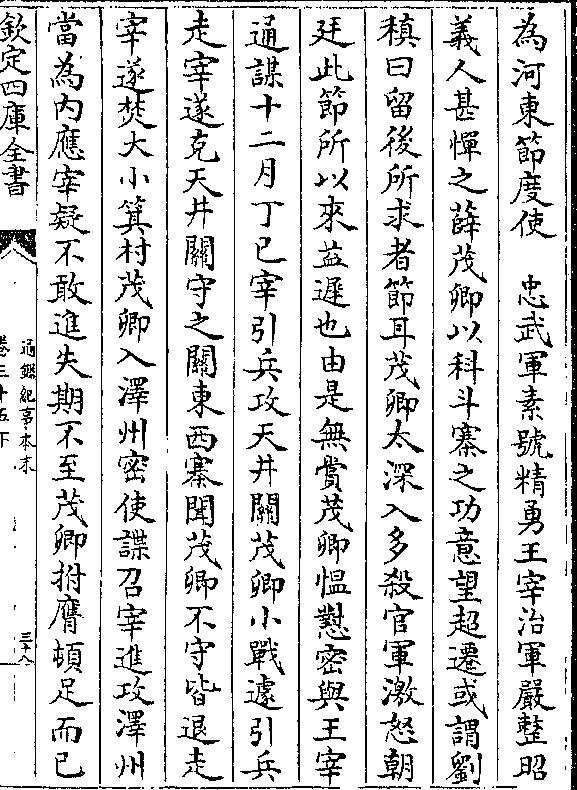 為河東節度使　忠武軍素號精勇王宰治軍嚴整昭
義人甚憚之薛茂卿以科斗寨之功意望超遷或謂劉
稹曰留後所求者節耳茂卿太深入多殺官軍激怒朝
廷此節所以來益遲也由是無賞茂卿愠懟密與王宰
通謀十二月丁巳宰引兵攻天井關茂卿小戰遽引兵
走宰遂克天井關守之關東西寨聞茂卿不守皆退走
宰遂焚大小箕村茂卿入澤州密使諜召宰進攻澤州
當為内應宰疑不敢進失期不至茂卿拊膺頓足而已
欽定四庫全書
通鑑紀事本末
卷三十五下
三十八